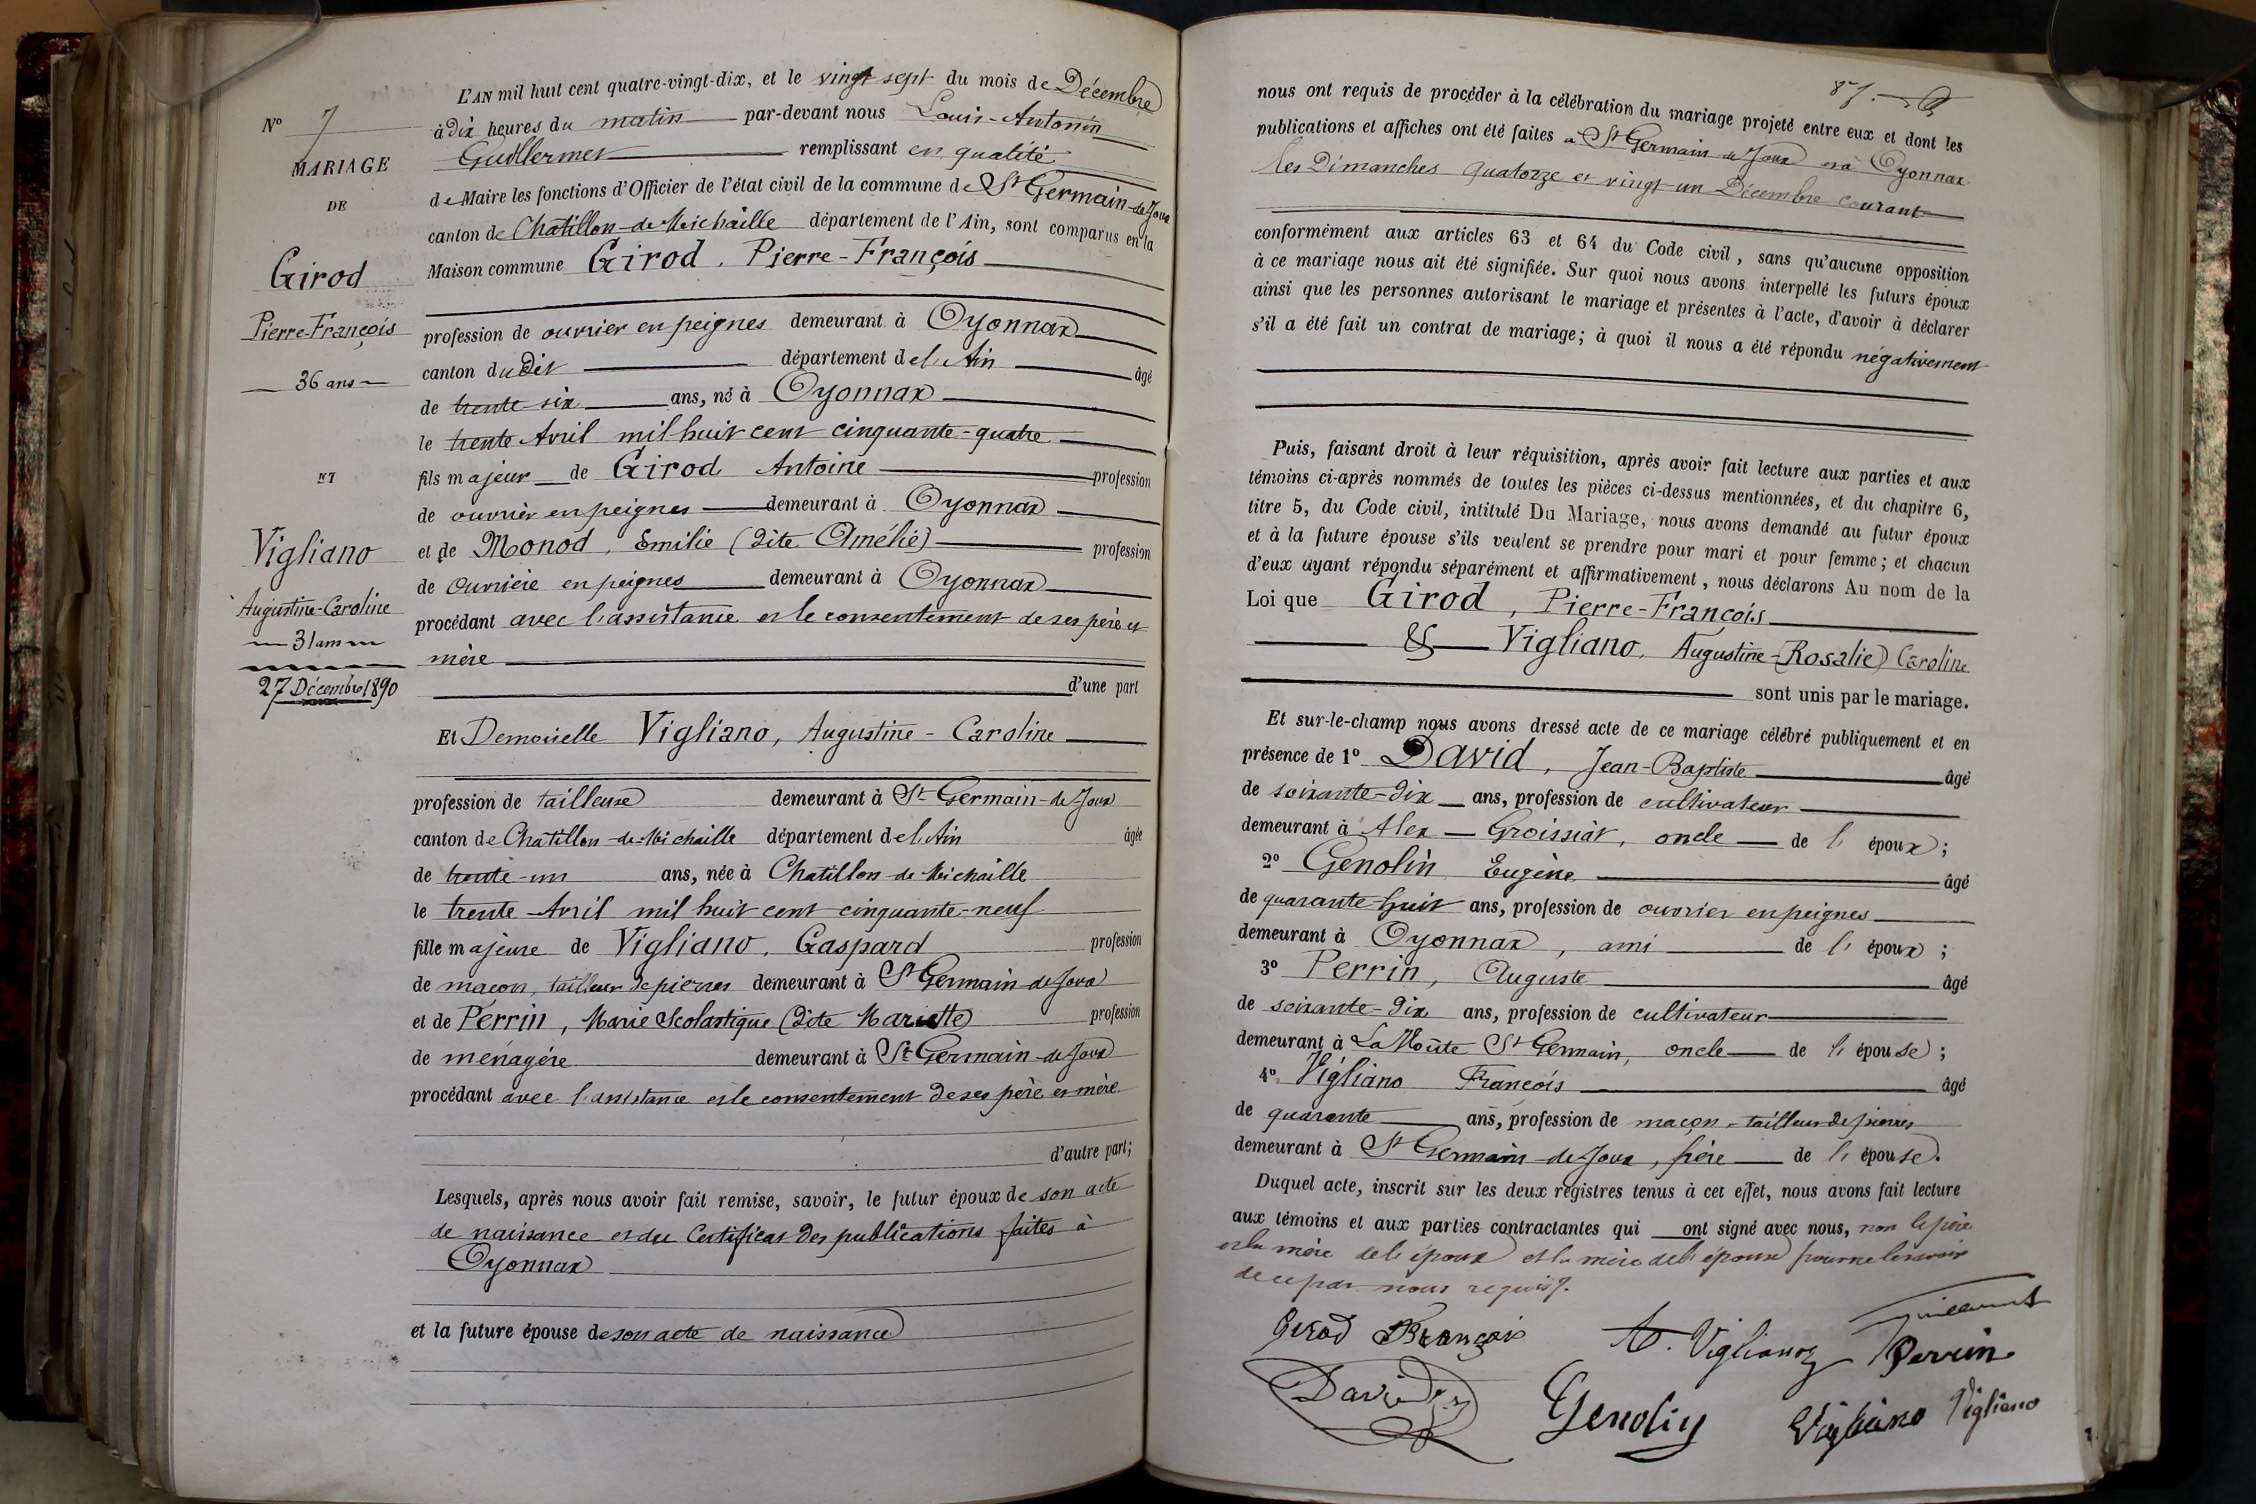 N° 7
MARIAGE
DE
Girod
Pierre-François
36 ans
ET
Vigliano
Augustine-Caroline
31 ans
27 Décembre 1890
L'AN mil huit cent quatre-vingt-dix, et le vingt sept du mois de Décembre
à dix heures du matin par-devant nous Louis-Antonin
Guillermet remplissant en qualité
de Maire les fonctions d'Officier de l'état civil de la commune de St Germain-de-Joux
canton de Chatillon-de-Michaille département de l'Ain, sont comparus en la
Maison commune Girod, Pierre-François
profession de ouvrier en peignes demeurant à Oyonnax
canton du dit département de l'Ain âgé
de trente-six ans, né à Oyonnax
le trente Avril mil huit cent cinquante-quatre
fils majeur de Girod Antoine profession
de ouvrier en peignes demeurant à Oyonnax
et de Monod, Emilie (dite Amélie) profession
de ouvrière en peignes demeurant à Oyonnax
procédant avec l'assistance et le consentement de ses père et
mère
d'une part
Et Demoiselle Vigliano, Augustine-Caroline
profession de tailleuse demeurant à St Germain-de-Joux
canton de Chatillon-de-Michaille département de l'Ain âgée
de trente-un ans, née à Chatillon-de-Michaille
le trente Avril mil huit cent cinquante-neuf
fille majeure de Vigliano, Gaspard profession
de maçon, tailleur de pierres demeurant à St Germain-de-Joux
et de Perrin, Marie Scolastique (dite Mariette) profession
de ménagère demeurant à St Germain-de-Joux
procédant avec l'assistance et le consentement de ses père et mère
d'autre part;
Lesquels, après nous avoir fait remise, savoir, le futur époux de son acte
de naissance et du Certificat des publications faites à
Oyonnax
et la future épouse de son acte de naissance
87.
nous ont requis de procéder à la célébration du mariage projeté entre eux et dont les
publications et affiches ont été faites à St Germain-de-Joux et à Oyonnax
les Dimanches quatorze et vingt-un Décembre courant
conformément aux articles 63 et 64 du Code civil, sans qu'aucune opposition
à ce mariage nous ait été signifiée. Sur quoi nous avons interpellé les futurs époux
ainsi que les personnes autorisant le mariage et présentes à l'acte, d'avoir à déclarer
s'il a été fait un contrat de mariage; à quoi il nous a été répondu négativement
Puis, faisant droit à leur réquisition, après avoir fait lecture aux parties et aux
témoins ci-après nommés de toutes les pièces ci-dessus mentionnées, et du chapitre 6,
titre 5, du Code civil, intitulé Du Mariage, nous avons demandé au futur époux
et à la future épouse s'ils veulent se prendre pour mari et pour femme; et chacun
d'eux ayant répondu séparément et affirmativement, nous déclarons Au nom de la
Loi que Girod, Pierre-François
& Vigliano, Augustine-(Rosalie) Caroline
sont unis par le mariage.
Et sur-le-champ nous avons dressé acte de ce mariage célébré publiquement et en
présence de 1° David, Jean-Baptiste âgé
de soixante-dix ans, profession de cultivateur
demeurant à Alex-Groissiat, oncle de l'époux;
2° Genolin Eugène âgé
de quarante huit ans, profession de ouvrier en peignes
demeurant à Oyonnax, ami de l'époux;
3° Perrin, Auguste âgé
de soixante-dix ans, profession de cultivateur
demeurant à La Voûte St Germain, oncle de l'épouse;
4° Vigliano François âgé
de quarante ans, profession de maçon-tailleur de pierres
demeurant à St Germain-de-Joux, frère de l'épouse.
Duquel acte, inscrit sur les deux registres tenus à cet effet, nous avons fait lecture
aux témoins et aux parties contractantes qui ont signé avec nous, non le père
et la mère de l'époux et la mère de l'épouse pour ne le savoir
de ce par nous requis.
Girod François A. Vigliano Guillermet
Perrin
David Genolin Vigliano Vigliano